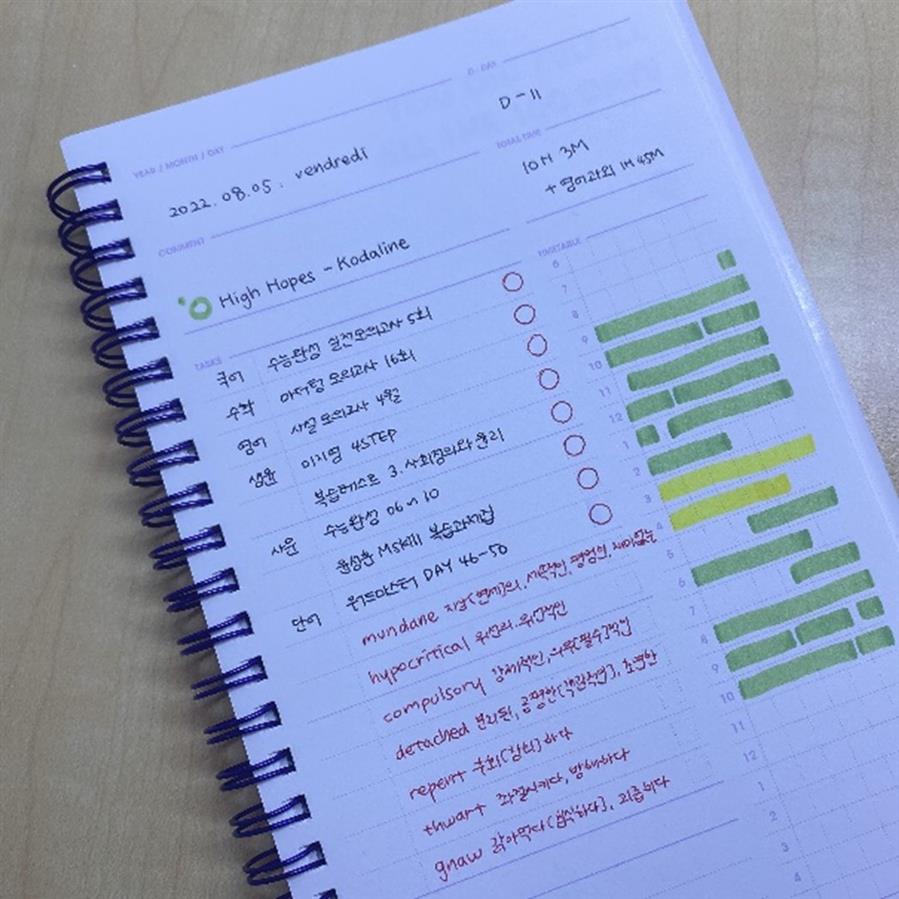 YEAR / MONTH / DAY
D - DAY
2022. 08. 05. vendredi
D-11
COMMENT
TOTAL TIME
High Hopes - Kodaline
10H 3M
+ 영어과외 1H 45M
TASKS
TIMETABLE
국어 수능완성 실전모의고사 5회
수학 모의고사 16회
영어 사설 모의고사 4월
생윤 이지영 4STEP
복습테스트 3. 사회정의와 윤리
사문 수능완성 06~10
윤성훈 MSKill 복습과제집
단어 워드마스터 DAY 46-50
mundane 지상(현세)의, 세속적인, 평범한, 재미없는
hypocritical 위선의, 위선적인
compulsory 강제적인, 의무[필수]적인
detached 분리된, 공평한[객관적인], 초연한
repent 후회[참회]하다
thwart 좌절시키다, 방해하다
gnaw 갉아먹다[침식하다], 괴롭히다
6
7
8
9
10
11
12
1
2
3
4
5
6
7
8
9
10
11
12
1
2
3
4